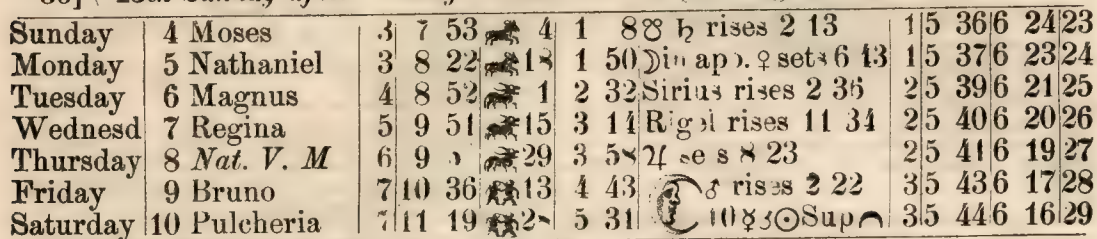 Sunday 4 Moses 3 7 53 4 1 8 ☍ ♄ rises 2 13 1 5 36 6 24 23
Monday 5 Nathaniel 3 8 22 18 1 50 ☽ in ap ☽. ♀ sets 6 43 1 5 37 6 23 24
Tuesday 6 Magnus 4 8 52 1 2 32 Sirius rises 2 36 2 5 39 6 21 25
Wednesd 7 Regina 5 9 51 15 3 14 Rigel rises 11 34 2 5 40 6 20 26
Thursday 8 Nat. V. M 6 9 29 3 58 ♃ 8 23 2 5 41 6 19 27
Friday 9 Bruno 7 10 36 13 4 43 ♂ rises 2 22 3 5 43 6 17 28
Saturday 10 Pulcheria 7 11 19 5 31 10 ☿ ☌ ☉ Sup 3 5 44 6 16 29